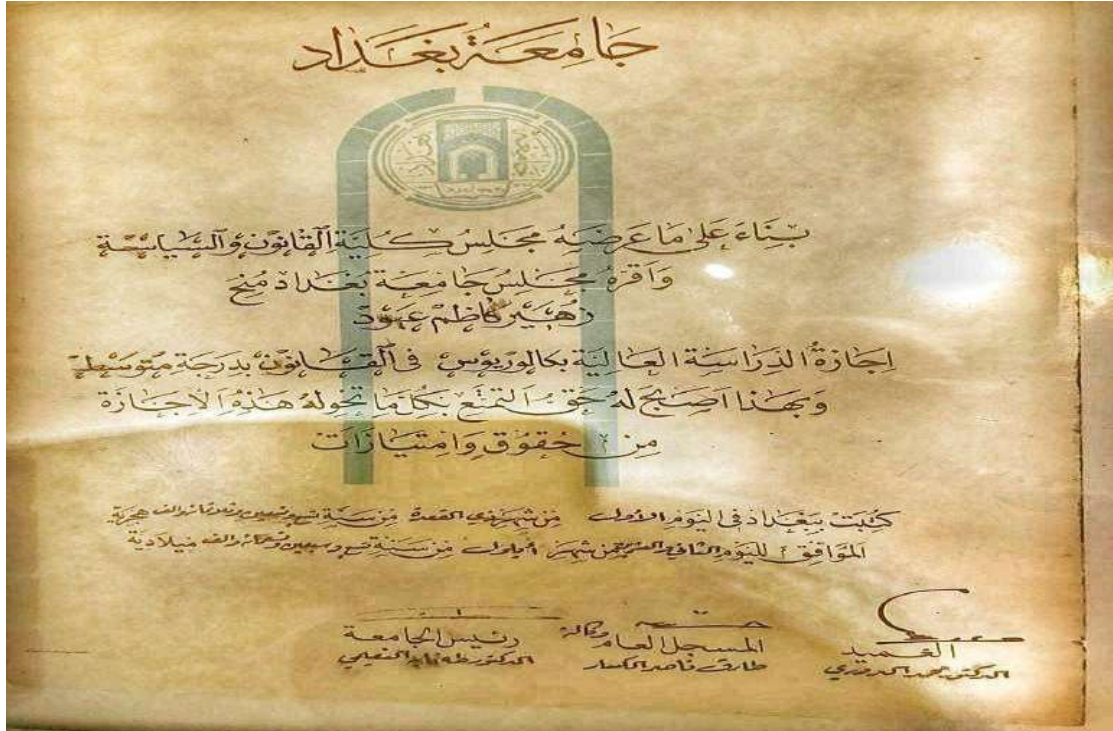 جامعة بغداد
بناءً على ما عرضه مجلس كلية القانون والسياسة
واقره مجلس جامعة بغداد منح
زهير كاظم عبود
اجازة الدراسة العالية بكالوريوس في القانون بدرجة متوسط
وبهذا اصبح له حق التمتع بكل ما تخوله هذه الاجازة
من حقوق وامتيازات
كتبت ببغداد في اليوم الأول من شهر ذي القعدة من سنة تسع وتسعين وثلاثمائة والف هجرية
الموافق لليوم الثاني والعشرين من شهر أيلول من سنة تسع وسبعين وتسعمائة والف ميلادية
العميد
المسجل العام وكالة
رئيس الجامعة
الدكتور محمد الدوري
طارق ناصر
الدكتور طه